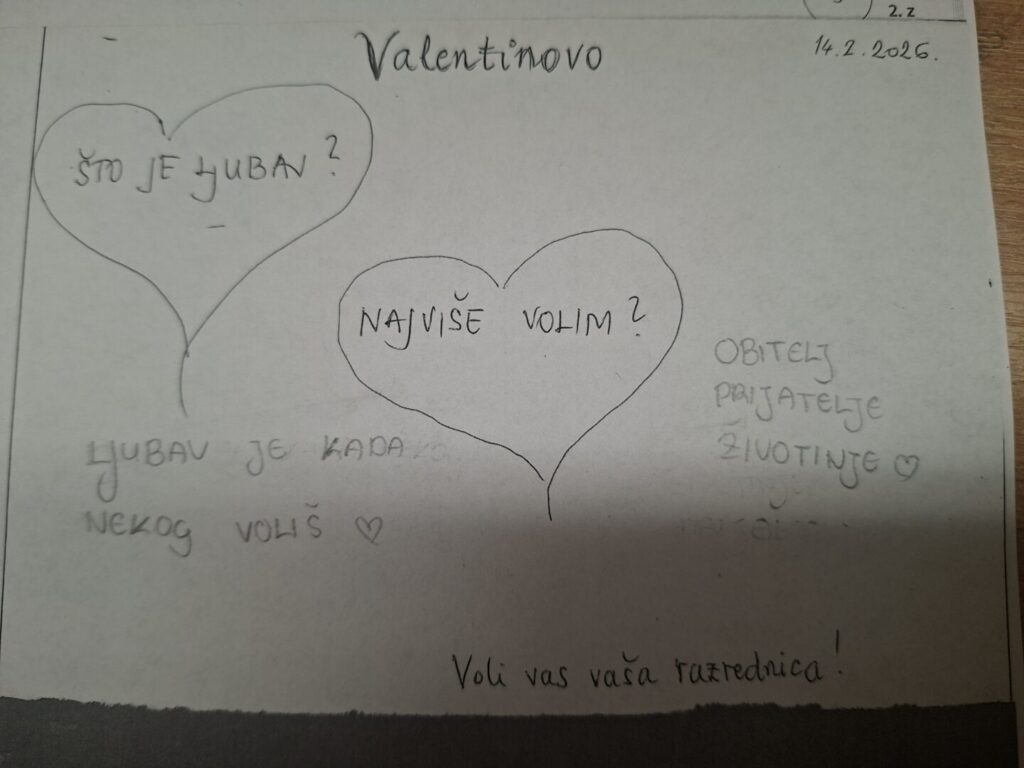 2.z
Valentinovo
14.2.2026.
ŠTO JE LJUBAV?
NAJVIŠE VOLIM?
LJUBAV JE KADA
NEKOG VOLIŠ ♡
OBITELJ
PRIJATELJE
ŽIVOTINJE ♡
Voli vas vaša razrednica!